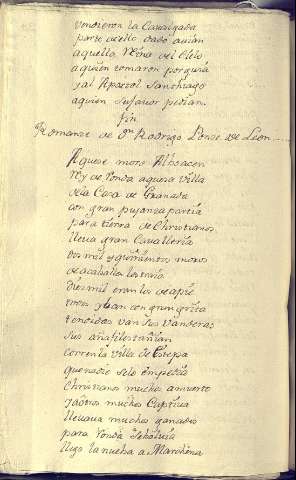 vendieron la Cavalgada
parte dello dado avian
aquella Reina del Cielo
aquien tomaron por guia
y al Apostol Santhiago
aquien su favor pedian.
Fin
Romanze de Dn Rodrigo Ponze de Leon
Aquese moro Alboacen
Rey de Ronda aquesa Villa
de la Casa de Granada
con gran pujanza partia
para tierra de Christianos
lleva gran Cavalleria
dos mil y quinientos moros
de acaballo
dies mil eran los de apie
todos van con gran grita
tendidas van sus vanderas
sus añafiles tañian
corren la Villa de Estepa
que nadie se lo impedia
Christianos muchos a muerto
y a otros muchos Captiva
llevava muchos ganados
para Ronda se bolvia
llegó la nueba a Marchena